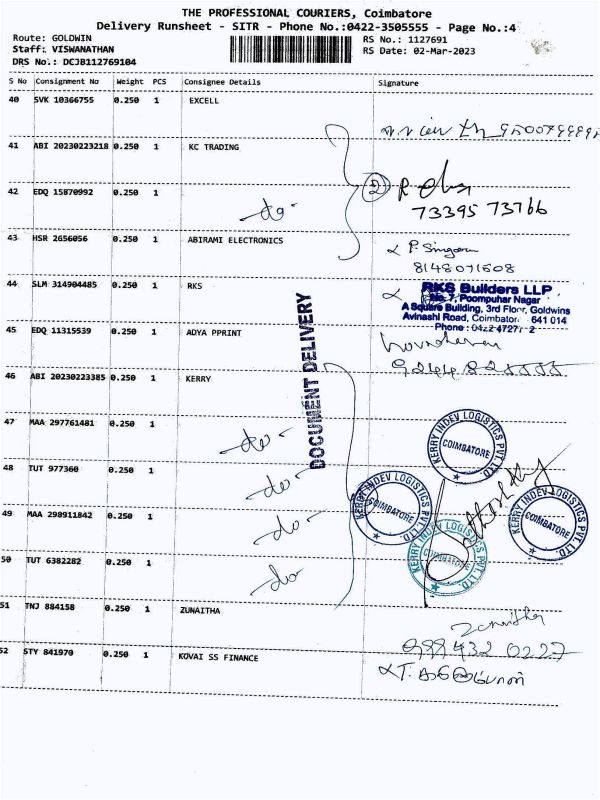 THE PROFESSIONAL COURIERS, Coimbatore
Delivery Runsheet - SITR - Phone No.:0422-3505555 - Page No.:4
Route: GOLDWIN RS No.: 1127691
Staff: VISWANATHAN RS Date: 02-Mar-2023
DRS No.: DCJB112769104
S No Consignment No Weight PCS Consignee Details Signature
40 SVK 10366755 0.250 1 EXCELL
41 ABI 20230223218 0.250 1 KC TRADING
42 EDQ 15870992 0.250 1 -do- 2
73395 73766
43 HSR 2656056 0.250 1 ABIRAMI ELECTRONICS
8148071508
44 SLM 314904485 0.250 1 RKS
RKS Builders LLP
No. 7, Poompuhar Nagar
A Square Building, 3rd Floor, Goldwins
Avinashi Road, Coimbatore 641 014
45 EDQ 11315539 0.250 1 ADYA PPRINT
46 ABI 20230223385 0.250 1 KERRY
DOCUMENT DELIVERY
47 MAA 297761481 0.250 1 -do-
48 TUT 977360 0.250 1 -do-
49 MAA 298911842 0.250 1 -do-
50 TUT 6382282 0.250 1 -do
KERRY INDEV LOGISTICS PVT LTD
COIMBATORE
KERRY INDEV LOGISTICS PVT LTD
COIMBATORE
KERRY INDEV LOGISTICS PVT LTD
COIMBATORE
KERRY INDEV LOGISTICS PVT LTD
COIMBATORE
51 TNJ 884158 0.250 1 ZUNAITHA
Zunaitha
52 STY 841970 0.250 1 KOVAI SS FINANCE